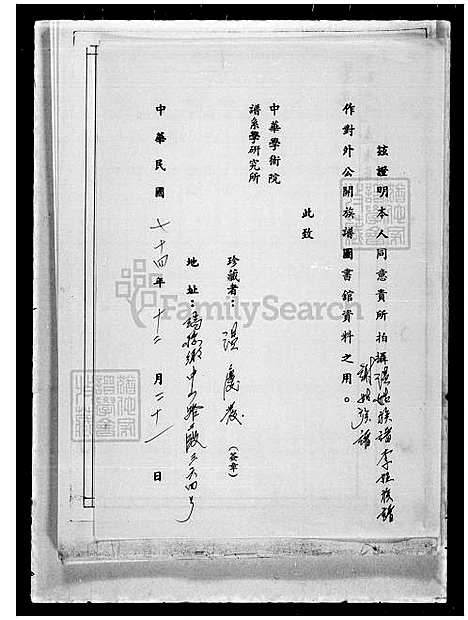 茲證明本人同意貴所拍攝溫姓族譜李姓族譜
謝姓族譜
作對外公開族譜圖書館資料之用。
此致
中華學術院
譜系學研究所
珍藏者：溫慶嚴（簽章）
地址：中山路段三六四号
中華民國七十四年十二月二十一日
FamilySearch